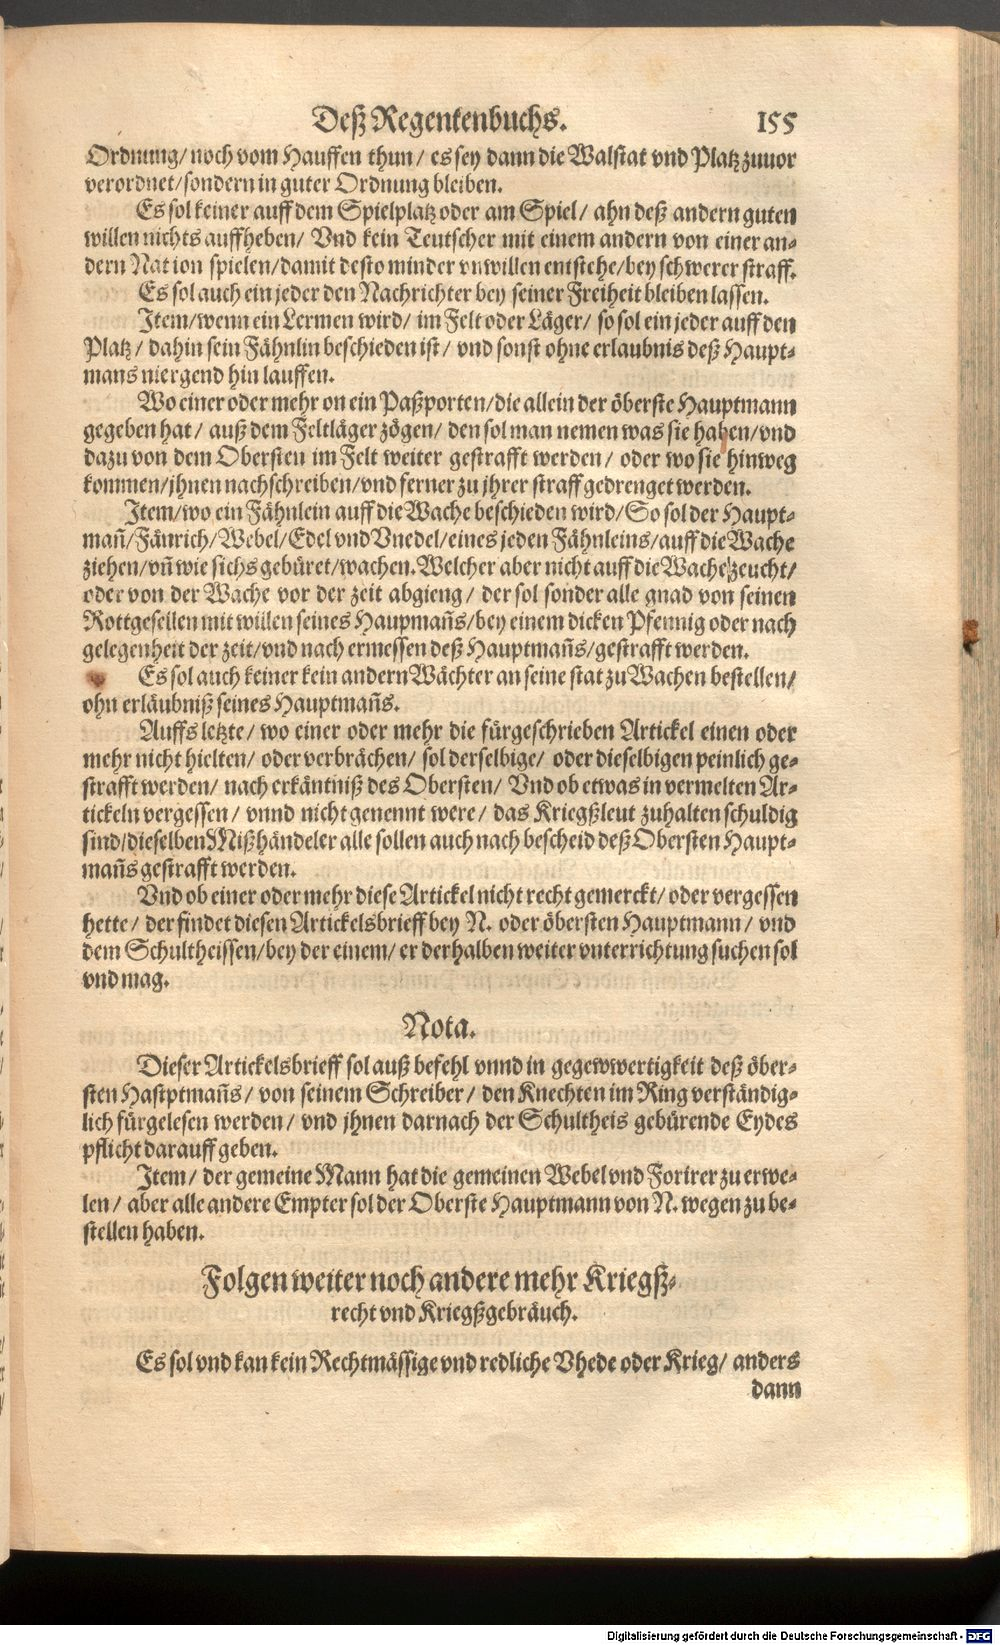 Deß Regentenbuchs. 155
Ordnung/ noch vom Hauffen thun/ es sey dann die Walstat vnd Platz zuuor
verordnet/ sondern in guter Ordnung bleiben.
Es sol keiner auff dem Spielplatz oder am Spiel/ ahn deß andern guten
willen nichts auffheben/ Vnd kein Teutscher mit einem andern von einer an-
dern Nation spielen/ damit desto minder vnwillen entstehe/ bey schwerer straff.
Es sol auch ein jeder den Nachrichter bey seiner Freiheit bleiben lassen.
Item/ wenn ein Lermen wird/ im Felt oder Läger/ so sol ein jeder auff den
Platz/ dahin sein Fähnlin beschieden ist/ vnd sonst ohne erlaubnis deß Haupt-
mans niergend hin lauffen.
Wo einer oder mehr on ein Paßporten/ die allein der öberste Hauptmann
gegeben hat/ auß dem Feltläger zögen/ den sol man nemen was sie haben/ vnd
dazu von dem Obersten im Felt weiter gestrafft werden/ oder wo sie hinweg
kommen/ jhnen nachschreiben/ vnd ferner zu jhrer straff gedrenget werden.
Item/ wo ein Fähnlein auff die Wache beschieden wird/ So sol der Haupt-
mañ/ Fänrich/ Webel/ Edel vnd Vnedel/ eines jeden Fähnleins/ auff die Wache
ziehen/ vñ wie sichs gebüret/ wachen. Welcher aber nicht auff die Wache zeucht/
oder von der Wache vor der zeit abgieng/ der sol sonder alle gnad von seinen
Rottgesellen mit willen seines Haupmañs/ bey einem dicken Pfennig oder nach
gelegenheit der zeit/ vnd nach ermessen deß Hauptmañs/ gestrafft werden.
Es sol auch keiner kein andern Wächter an seine stat zu Wachen bestellen/
ohn erläubniß seines Hauptmañs.
Auffs letzte/ wo einer oder mehr die fürgeschrieben Artickel einen oder
mehr nicht hielten/ oder verbrächen/ sol derselbige/ oder dieselbigen peinlich ge-
strafft werden/ nach erkäntniß des Obersten/ Vnd ob etwas in vermelten Ar-
tickeln vergessen/ vnnd nicht genennt were/ das Kriegßleut zuhalten schuldig
sind/ dieselben Mißhändeler alle sollen auch nach bescheid deß Obersten Haupt-
mañs gestrafft werden.
Vnd ob einer oder mehr diese Artickel nicht recht gemerckt/ oder vergessen
hette/ der findet diesen Artickelsbrieff bey N. oder öbersten Hauptmann/ vnd
dem Schultheissen/ bey der einem/ er derhalben weiter vnterrichtung suchen sol
vnd mag.
Nota.
Dieser Artickelsbrieff sol auß befehl vnnd in gegewwertigkeit deß öber-
sten Hastptmañs/ von seinem Schreiber/ den Knechten im Ring verständig-
lich fürgelesen werden/ vnd jhnen darnach der Schultheis gebürende Eydes
pflicht darauff geben.
Item/ der gemeine Mann hat die gemeinen Webel vnd Forirer zu erwe-
len/ aber alle andere Empter sol der Oberste Hauptmann von N. wegen zu be-
stellen haben.
Folgen weiter noch andere mehr Kriegß-
recht vnd Kriegßgebräuch.
Es sol vnd kan kein Rechtmässige vnd redliche Vhede oder Krieg/ anders
dann
Digitalisierung gefördert durch die Deutsche Forschungsgemeinschaft - DFG